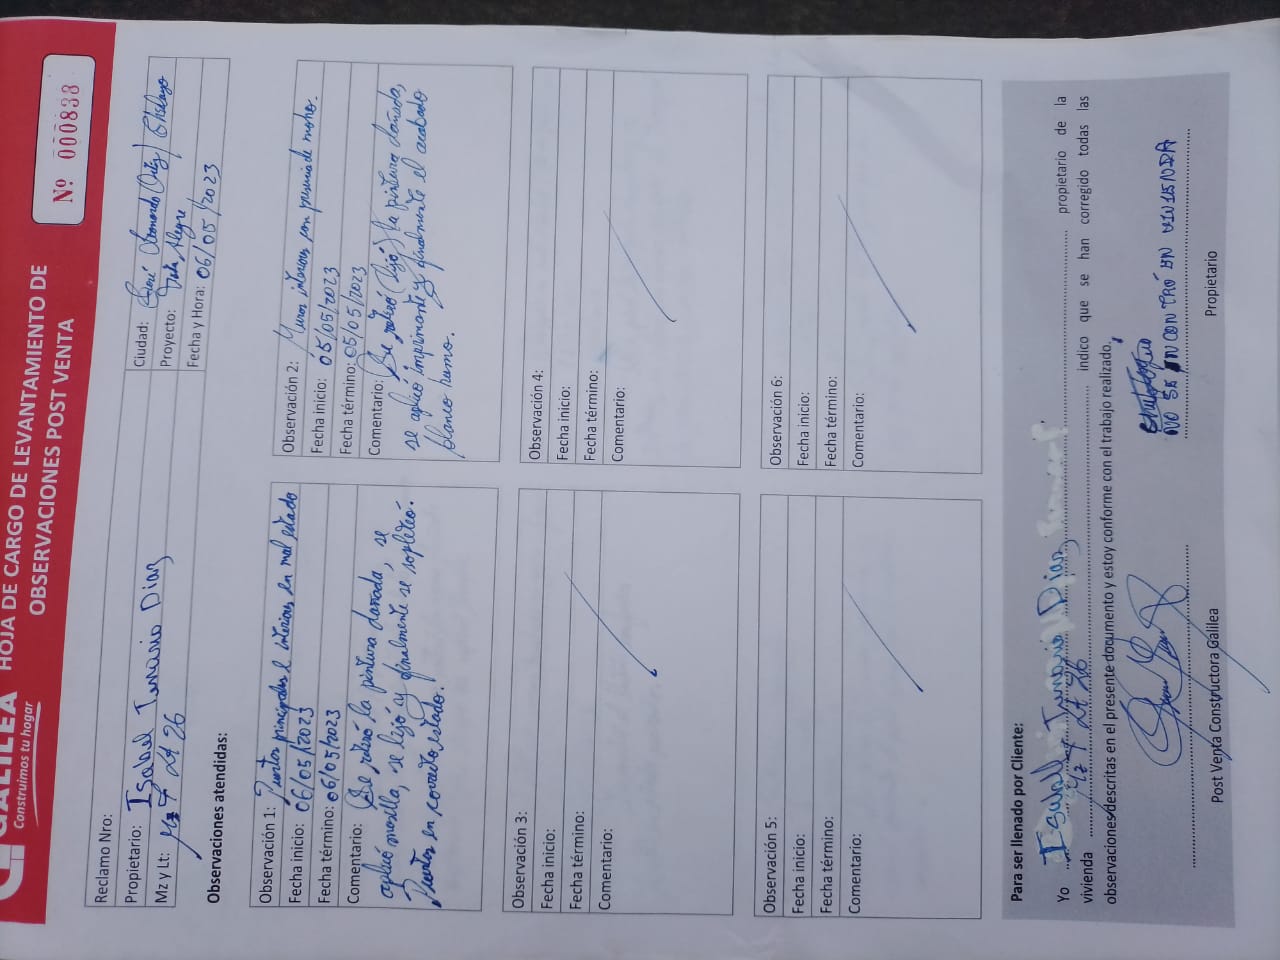 GALILEA
Construimos tu hogar
HOJA DE CARGO DE LEVANTAMIENTO DE
OBSERVACIONES POST VENTA
Nº 000838
Reclamo Nro:
Propietario: Isabel Tenorio Diaz
Mz y Lt: Mz F Lt 26
Ciudad: José Leonardo Ortiz / Chiclayo
Proyecto: Vista Alegre
Fecha y Hora: 06/05/2023
Observaciones atendidas:
Observación 1: Puertas principales e interiores en mal estado
Fecha inicio: 06/05/2023
Fecha término: 06/05/2023
Comentario: Se retiró la pintura dañada, se
aplicó masilla, se lijó y finalmente se sopleteó.
Puertas en correcto estado.
Observación 2: Muros interiores con presencia de moho.
Fecha inicio: 05/05/2023
Fecha término: 05/05/2023
Comentario: Se retiró (lijó) la pintura dañada,
se aplicó imprimante y finalmente el acabado
blanco humo.
Observación 3:
Fecha inicio:
Fecha término:
Comentario:
Observación 4:
Fecha inicio:
Fecha término:
Comentario:
Observación 5:
Fecha inicio:
Fecha término:
Comentario:
Observación 6:
Fecha inicio:
Fecha término:
Comentario:
Para ser llenado por Cliente:
Yo Isabel Tenorio Diaz propietario de la
vivienda Mz F Lt 26 indico que se han corregido todas las
observaciones descritas en el presente documento y estoy conforme con el trabajo realizado.
NO SE ENCONTRÓ EN VIVIENDA
Post Venta Constructora Galilea
Propietario